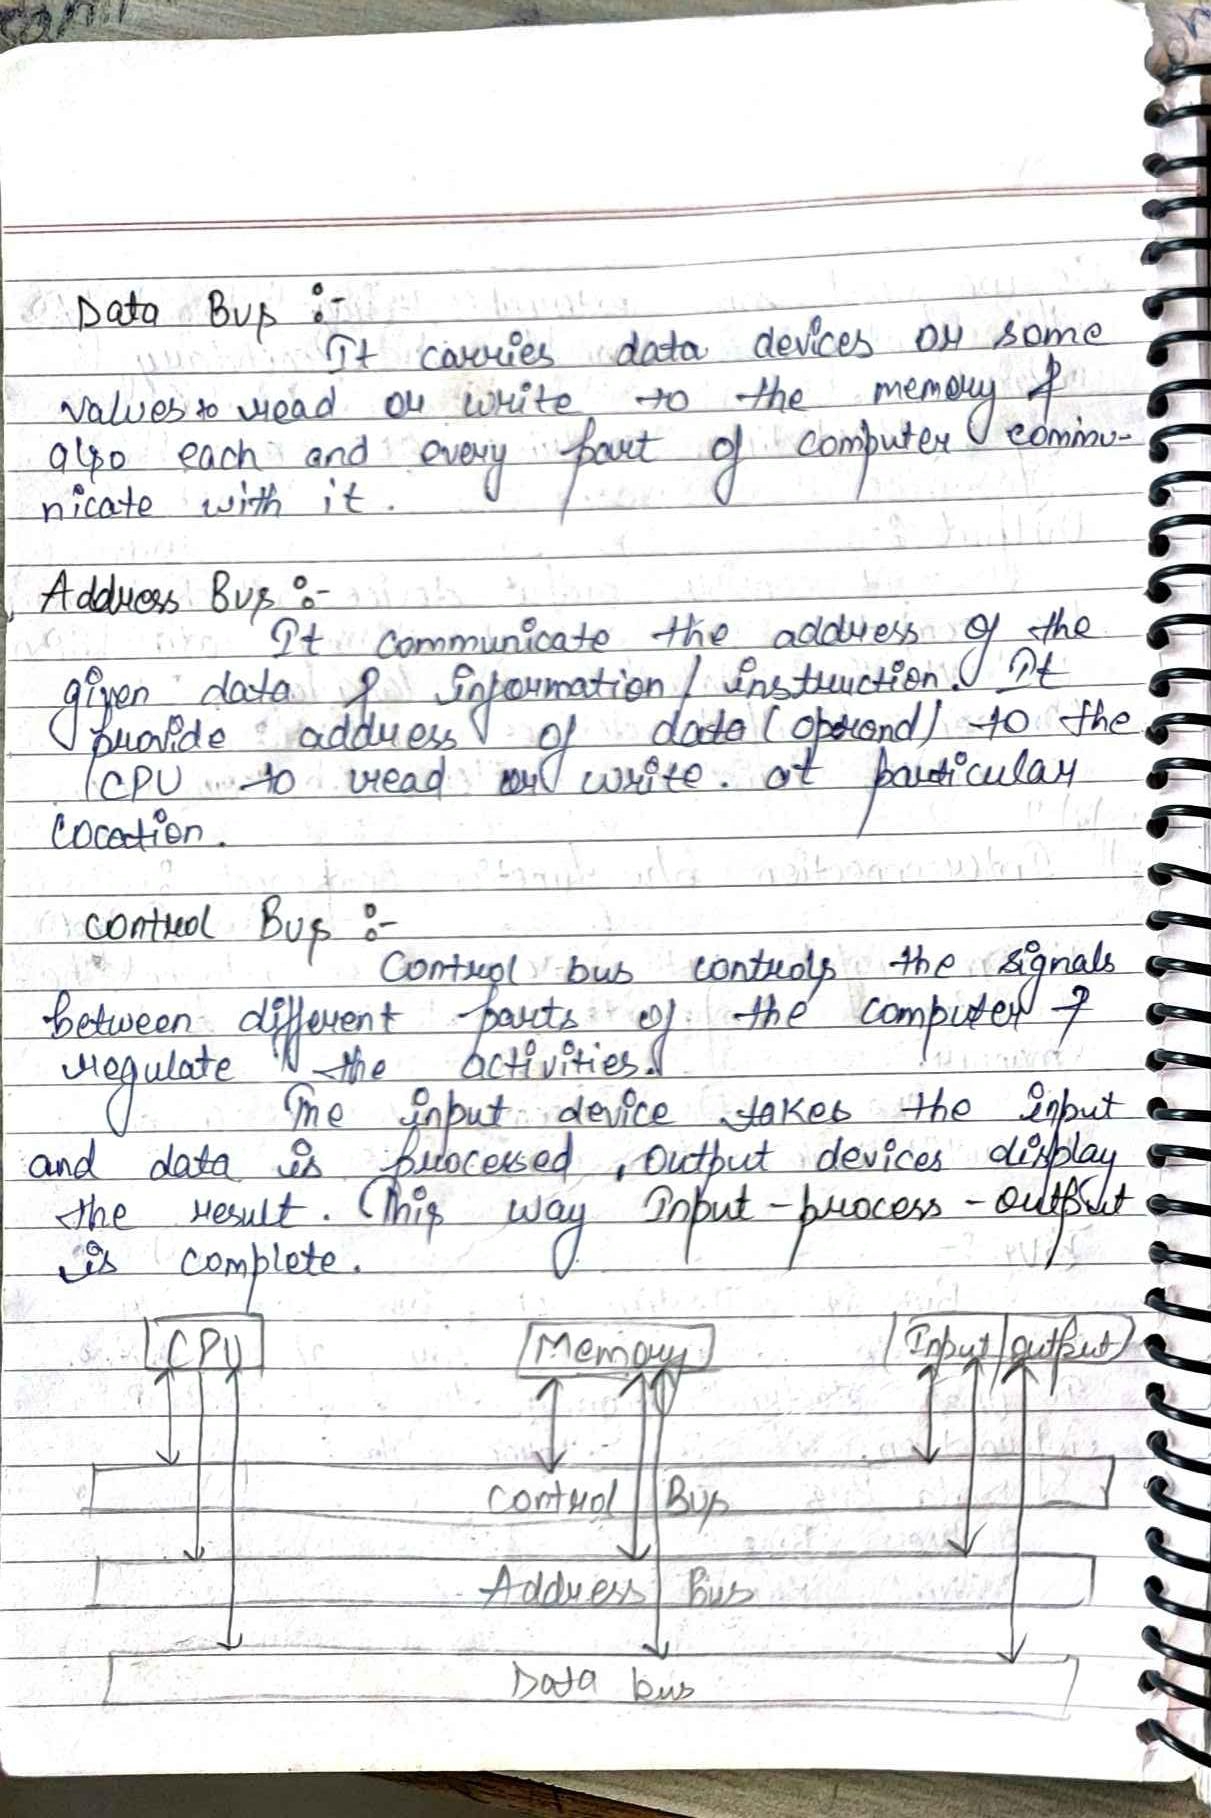 Data Bus :-
It carries data devices or some
values to read or write to the memory &
also each and every part of computer commu-
nicate with it.
Address Bus :-
It communicate the address of the
given data & information / instruction. It
provide address of data (operand) to the
CPU to read or write. at particular
Cocation.
control Bus :-
Control bus controls the signals
between different parts of the computer &
regulate the activities.
The input device takes the input
and data is processed, output devices display
the result. This way Input-process-output
is complete.
CPU Memory Input/output
Control Bus
Address Bus
Data bus